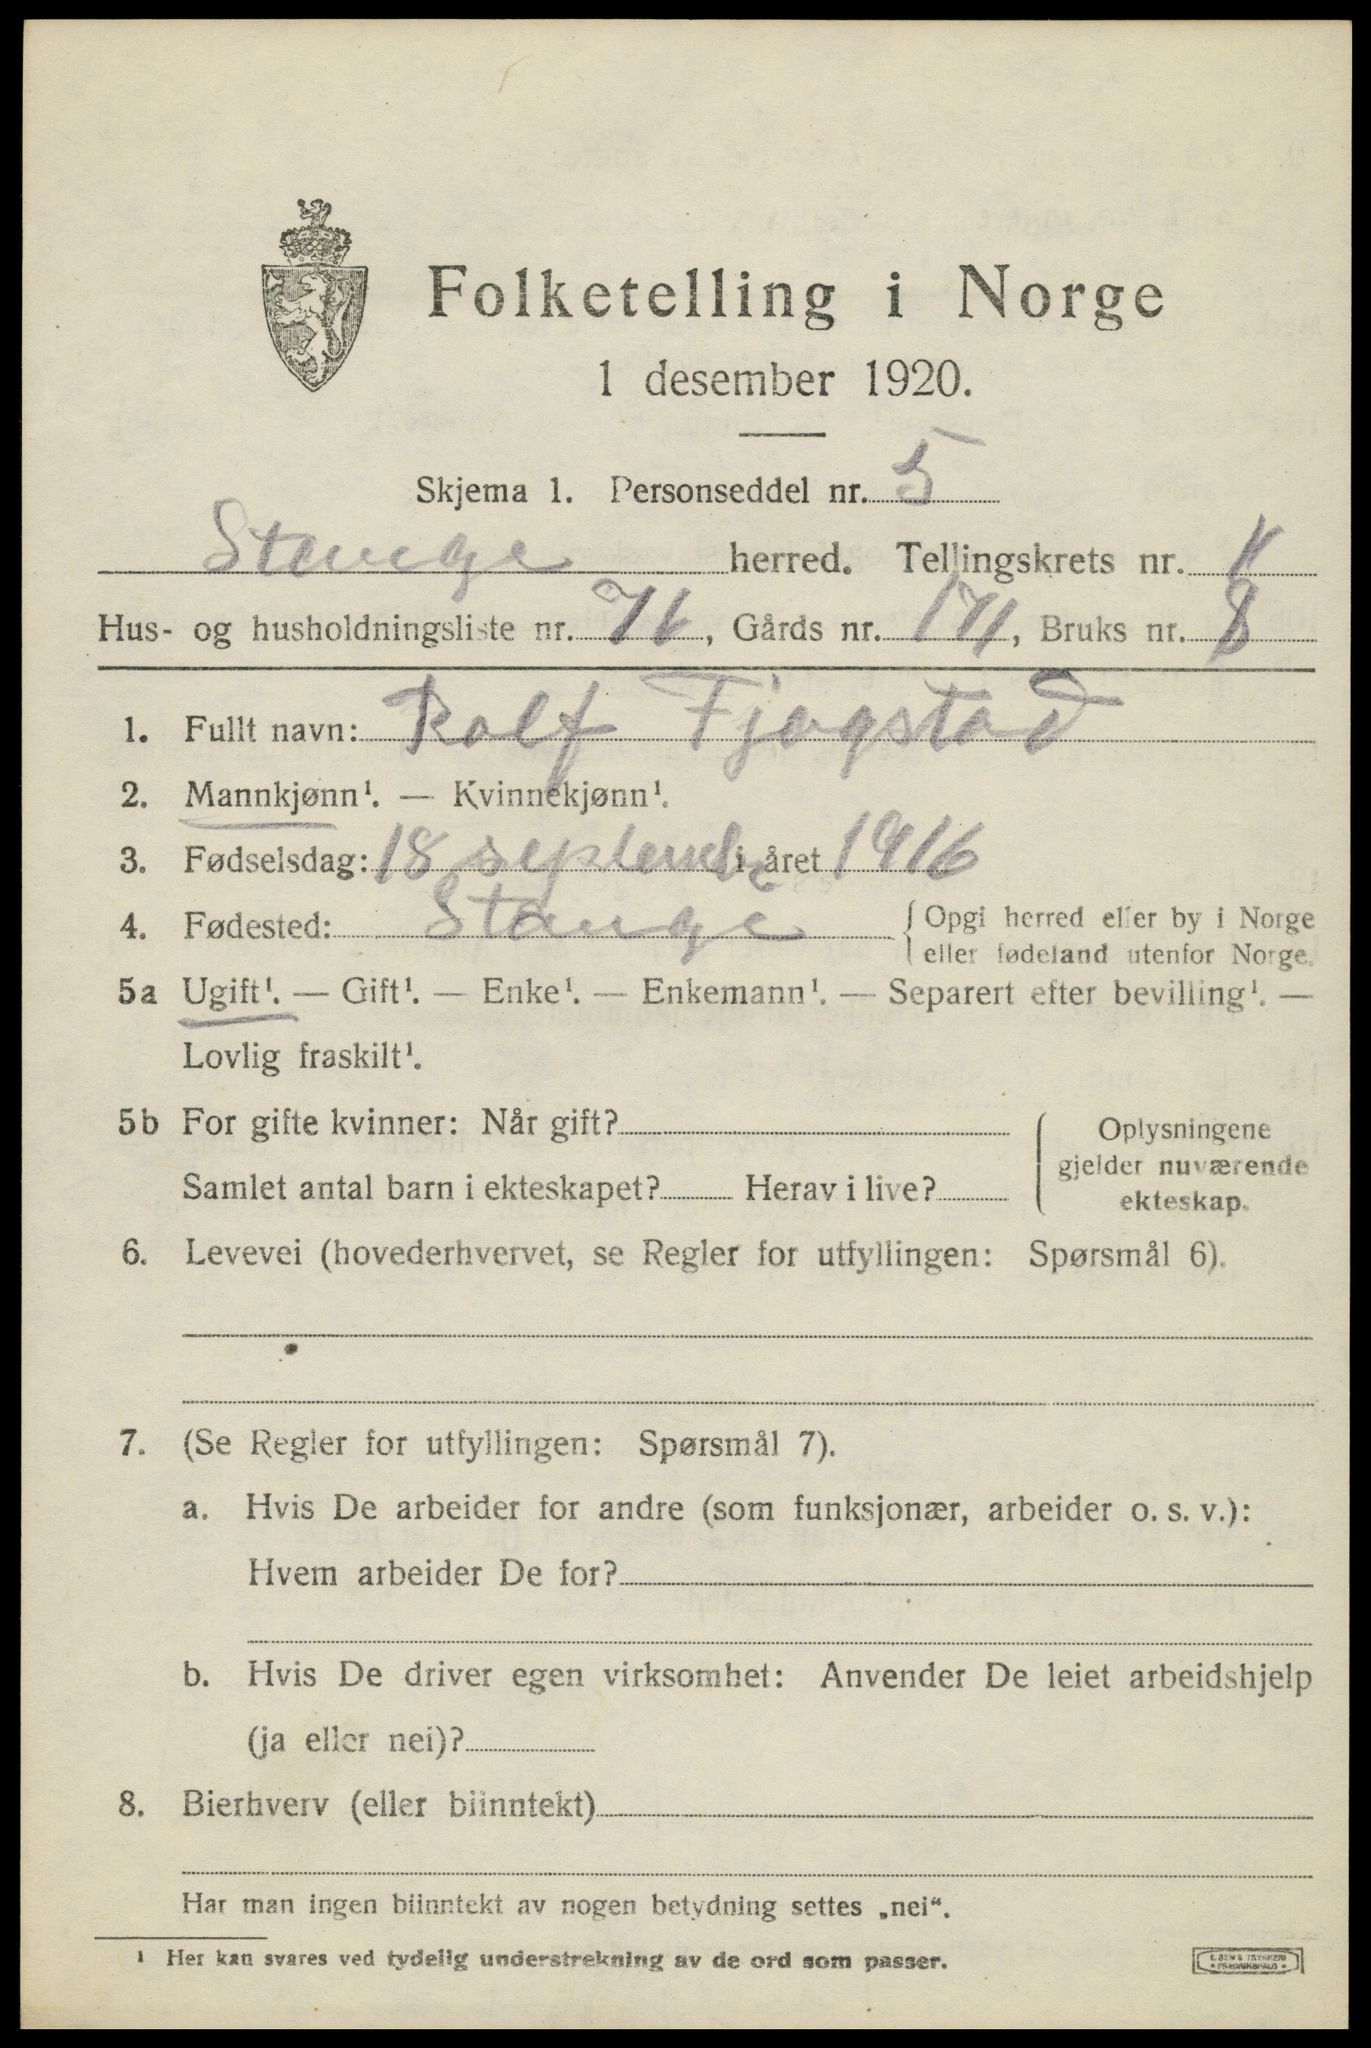 Folketelling i Norge
1 desember 1920.
Skjema 1. Personseddel nr. 5
Stange herred. Tellingskrets nr.
Hus- og husholdningsliste nr. 76, Gårds nr. 171, Bruks nr. 8
1. Fullt navn: Rolf Fjogstad
2. Mannkjønn¹. — Kvinnekjønn¹.
3. Fødselsdag: 18 september i året 1916
4. Fødested: Stange { Opgi herred eller by i Norge
eller fødeland utenfor Norge.
5a Ugift¹. — Gift¹. — Enke¹. — Enkemann¹. — Separert efter bevilling¹. —
Lovlig fraskilt¹.
5b For gifte kvinner: Når gift?
Samlet antal barn i ekteskapet? Herav i live?
Oplysningene
gjelder nuværende
ekteskap.
6. Levevei (hovederhvervet, se Regler for utfyllingen: Spørsmål 6).
7. (Se Regler for utfyllingen: Spørsmål 7).
a. Hvis De arbeider for andre (som funksjonær, arbeider o. s. v.):
Hvem arbeider De for?
b. Hvis De driver egen virksomhet: Anvender De leiet arbeidshjelp
(ja eller nei)?
8. Bierhverv (eller biinntekt)
Har man ingen biinntekt av nogen betydning settes „nei“.
¹ Her kan svares ved tydelig understrekning av de ord som passer.